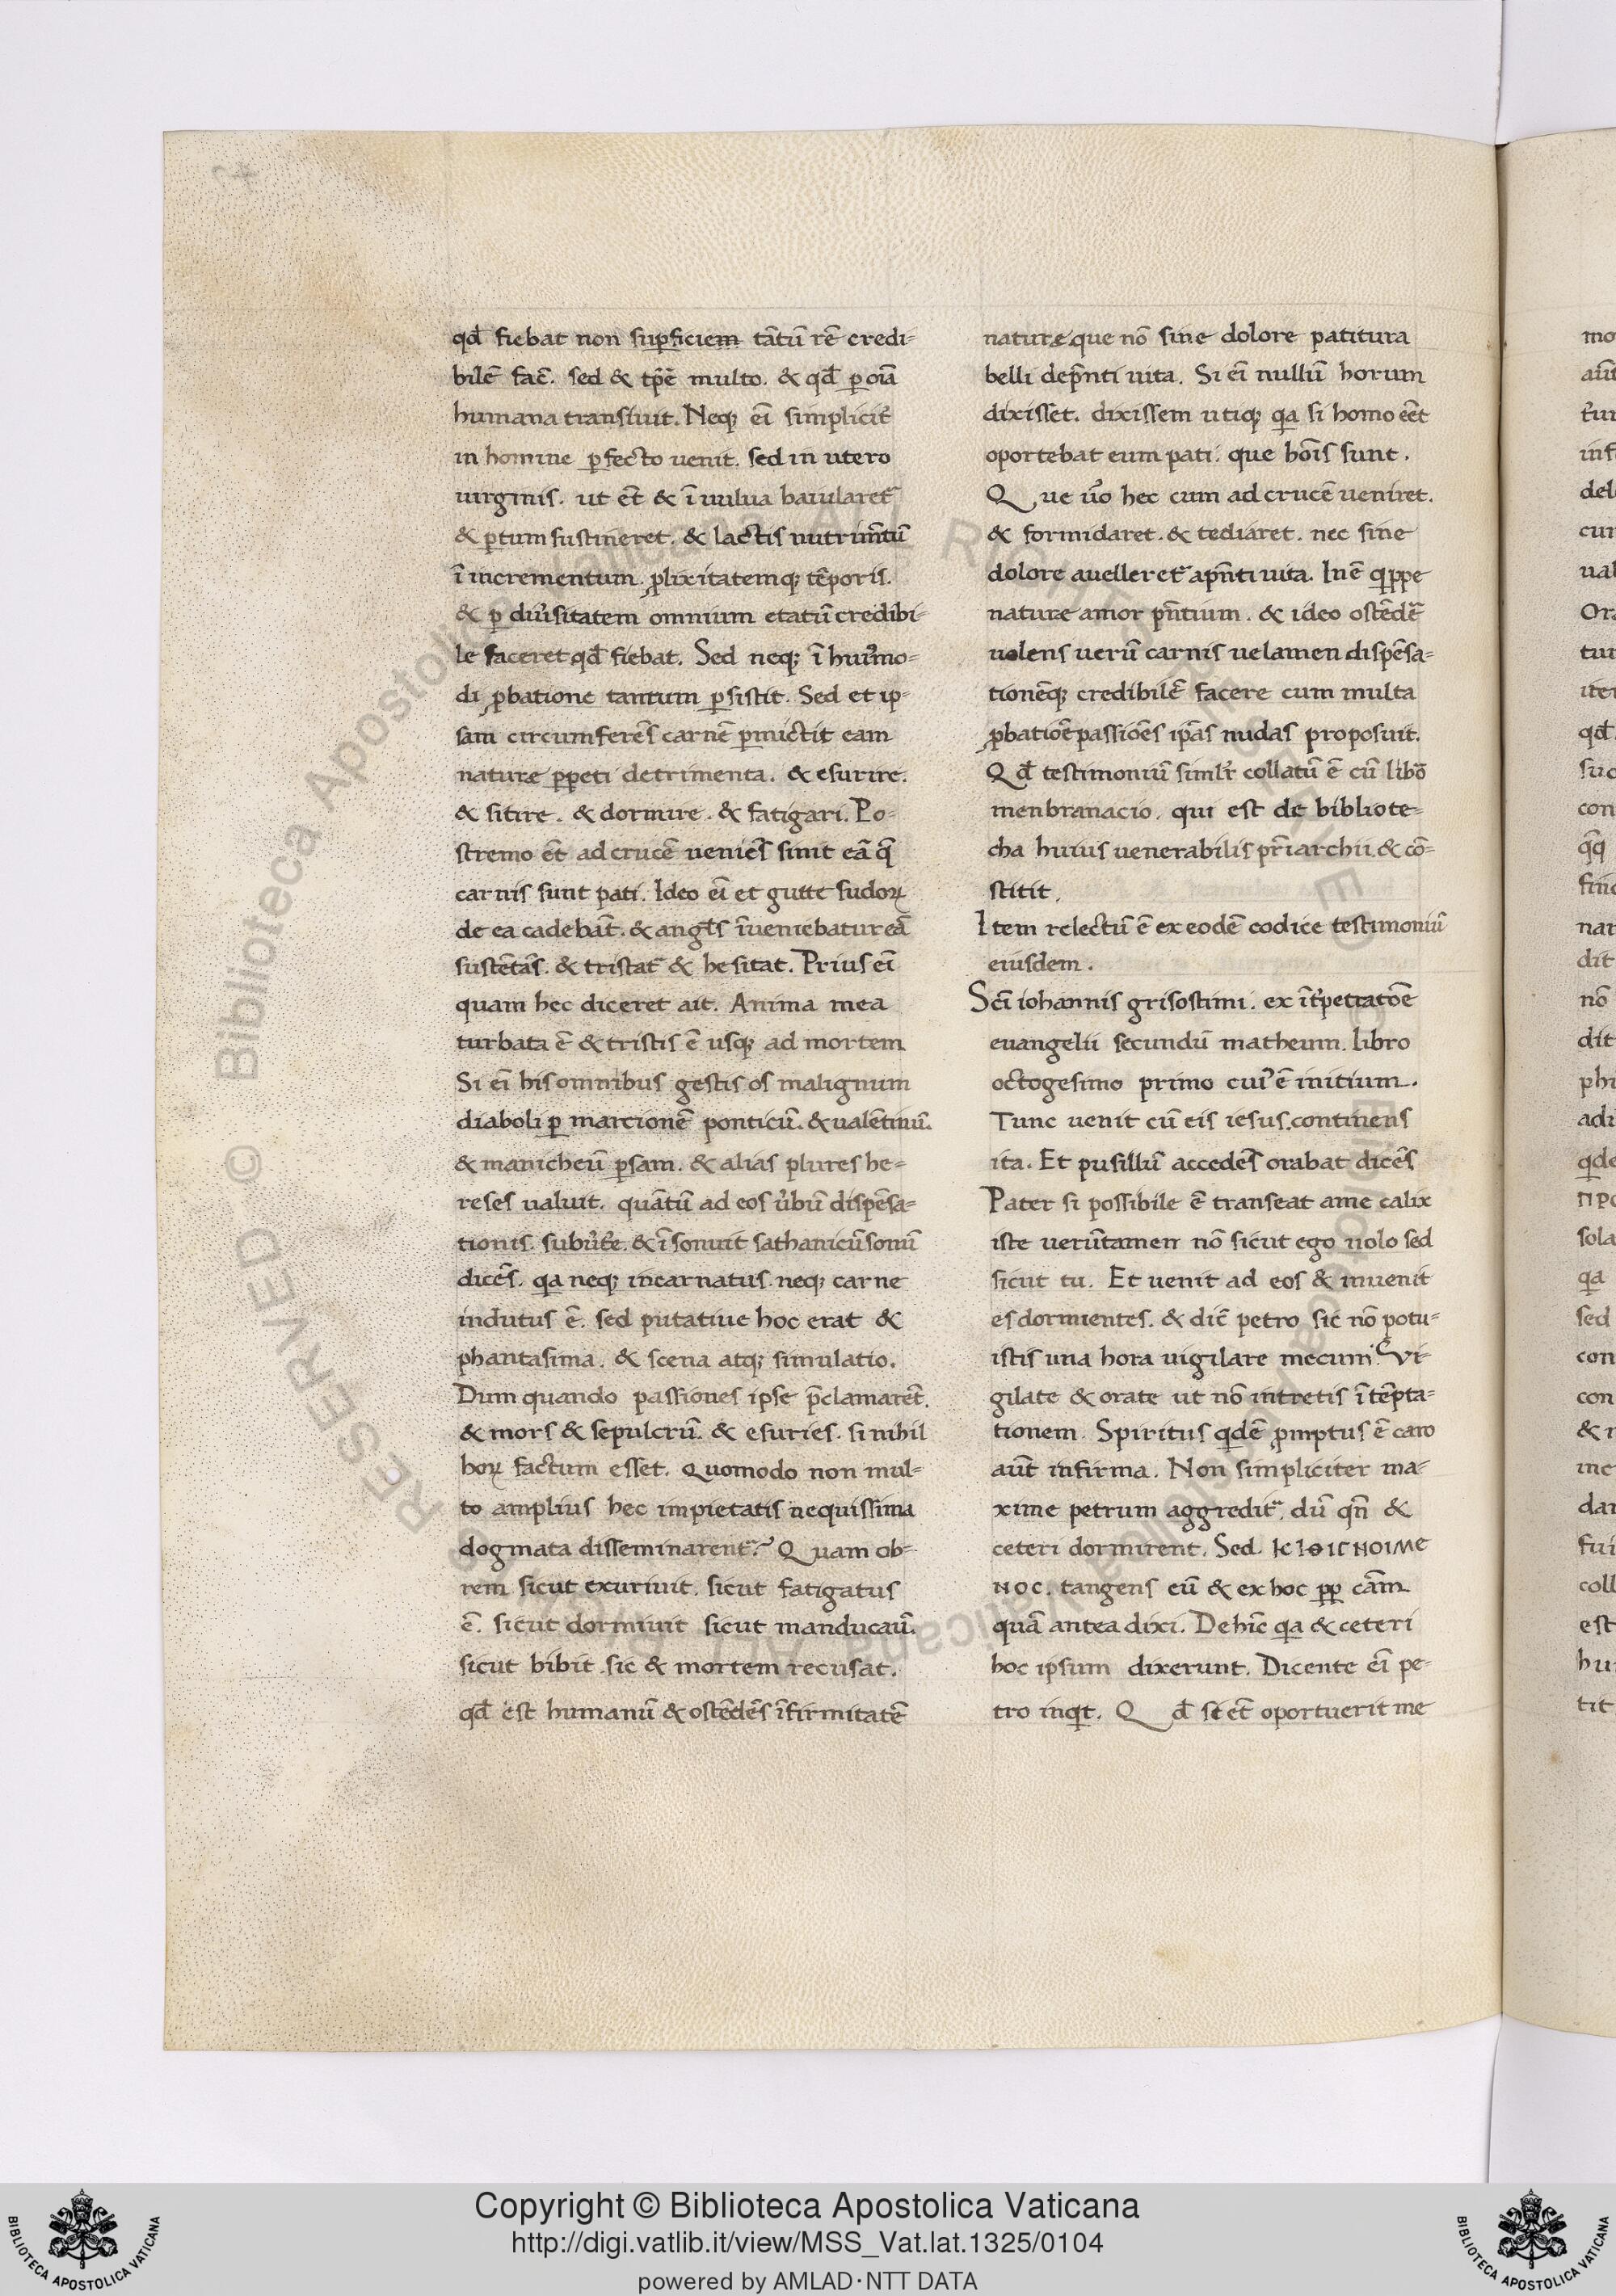 qd̄ fiebat non sup̱ficiem tātū rē credi-
bilē fac̄. sed & tp̄e multo. & qd̄ p̱ oīa
humana transiuit. Neq; ei̅ simplicit̄
in homine p̱fecto uenit. sed in utero
uirginis. ut et̄ & ī uulua baiularet̄
& p̱tum sustineret. & lactis nutrim̄tū
ī incrementum. ꝓlixitatemq; tēporis.
& p̱ diu̓sitatem omnium etatū credibi-
le faceret qd̄ fiebat. Sed neq; ī hui̓mo-
di ꝓbatione tantum p̱sistit. Sed et ip-
sam circumferēs carnē p̱mictit eam
naturæ p̱peti detrimenta. & esurire.
& sitire. & dormire. & fatigari. Po-
stremo et̄ ad crucē ueniēs sinit eā q̄
carnis sunt pati. Ideo ei̅ et gutte sudoꝝ
de ea cadebāt. & angl̄s īueniebatur eā
sustētās. & tristat̄ & hesitat. Prius ei̅
quam hec diceret ait. Anima mea
turbata ē & tristis ē usq; ad mortem
Si ei̅ his omnibus gestis os malignum
diaboli p̱ marcionē ponticū. & ualētinū.
& manicheū p̱sam. & alias plures he-
reses ualuit. quātū ad eos u̓bū dispēsa-
tionis. subu̓te̓. & ī sonuit sathanicū sonū
dicēs. qa neq; incarnatus. neq; carne
indutus ē. sed putatiue hoc erat &
phantasima. & scena atq; simulatio.
Dum quando passiones ipse p̄clamarēt.
& mors & sepulcrū. & esuries. si nihil
hoꝝ factum esset. Quomodo non mul-
to amplius hec impietatis nequissima
dogmata disseminarent̄? Quam ob-
rem sicut exuriuit. sicut fatigatus
ē. sicut dormiuit sicut manducaū.
sicut bibit. sic & mortem recusat.
qd̄ est humanū & ostēdēs īfirmitatē
naturæ que nō sine dolore patitura
belli dep̄nti uita. Si ei̅ nullū horum
dixisset. dixissem utiq; qa si homo eēt
oportebat eum pati. que hoīs sunt.
Que u̓o hec cum ad crucē ueniret.
& formidaret. & tediaret. nec sine
dolore auelleret̄ ap̄nti uita. In ē qp̱pe
naturæ amor p̄ntium. & ideo ostēde̓
uolens uerū carnis uelamen dispēsa-
tionēq; credibilē facere cum multa
ꝓbatiōe passiōes ip̄as nudas proposuit.
Qd̄ testimoniū simlr̄ collatū ē cū libō
menbranacio. qui est de bibliote-
cha huius uenerabilis pr̄iarchii. & cō-
stitit.
Item relectū ē ex eodē codice testimoniū
eiusdem.
Scī iohannis grisostimi. ex īt̓petratōe
euangelii secundū matheum. libro
octogesimo primo cui̓ ē initium.
Tunc uenit cū eis iesus. continens
ita. Et pusillū accedēs orabat dicēs
Pater si possibile ē transeat ame calix
iste uerūtamen nō sicut ego uolo sed
sicut tu. Et uenit ad eos & inuenit
es dormientes. & dic̄ petro sic nō potu-
istis una hora uigilare mecum? Vi-
gilate & orate ut nō intretis ī tēpta-
tionem. Spiritus qdē ꝓmptus ē caro
aūt infirma. Non simpliciter ma-
xime petrum aggredit̄. dū qn̄ &
ceteri dormirent. Sed. ΙϹΙΘΙϹΝΟΙΜЄ
ΝΟϹ. tangens eū & ex hoc pp̱ cām
quā antea dixi. De hīc qa & ceteri
hoc ipsum dixerunt. Dicente ei̅ pe-
tro inqt. Qd̄ si et̄ oportuerit me
Copyright © Biblioteca Apostolica Vaticana
http://digi.vatlib.it/view/MSS_Vat.lat.1325/0104
powered by AMLAD·NTT DATA
BIBLIOTECA APOSTOLICA VATICANA
BIBLIOTECA APOSTOLICA VATICANA